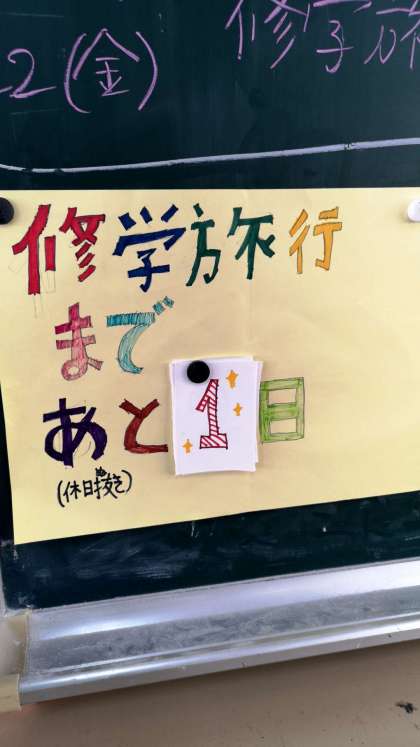 2(金) 修学旅
修学旅行
まで
あと1日
(休日抜き)